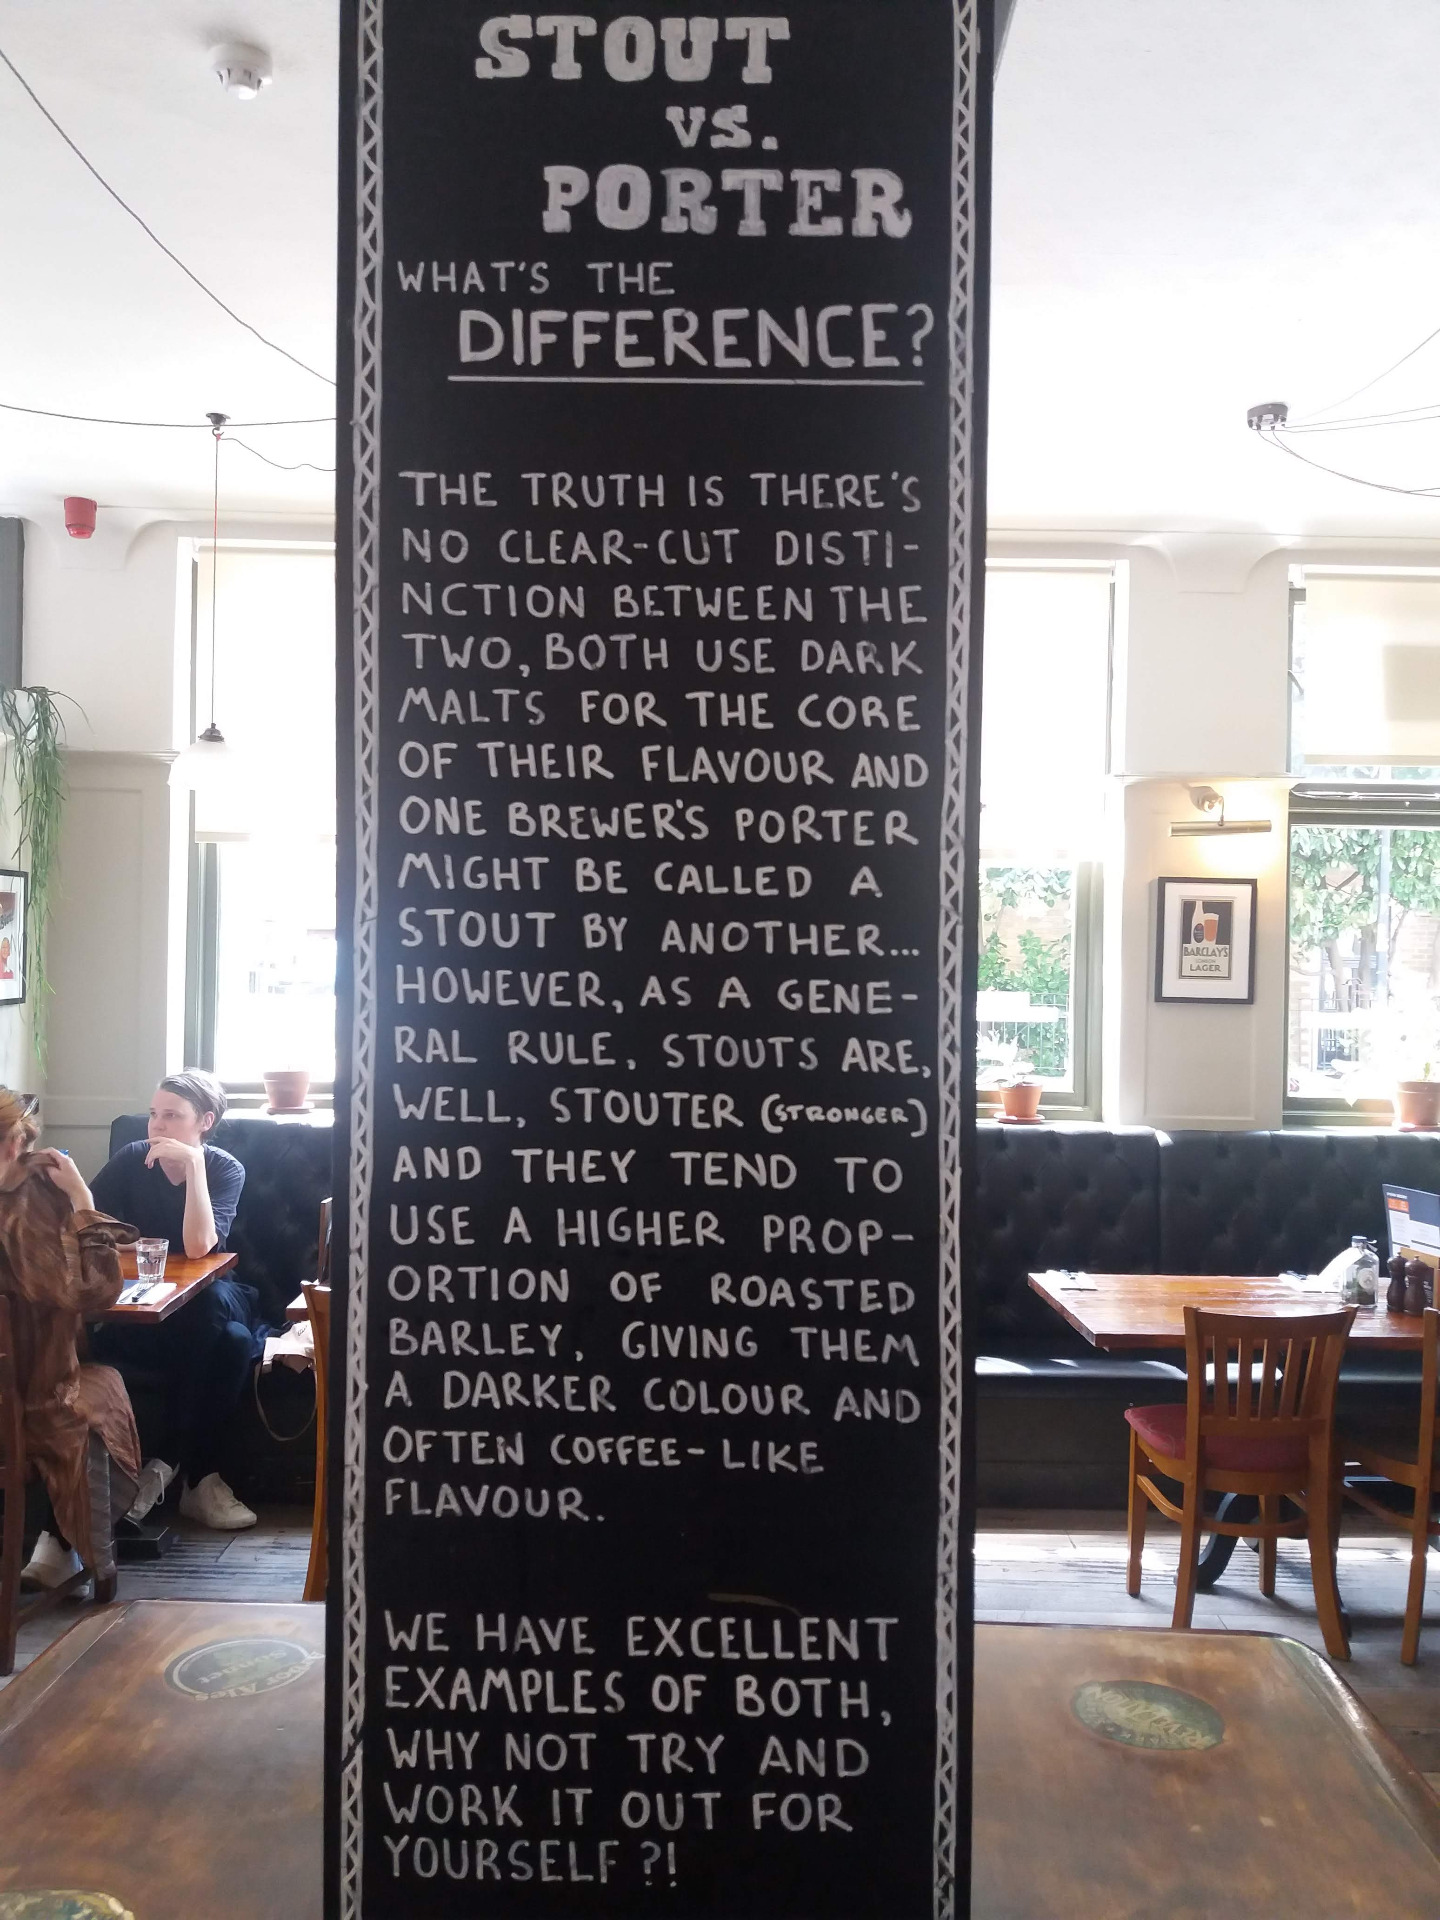 STOUT
VS.
PORTER
WHAT'S THE
DIFFERENCE?
THE TRUTH IS THERE'S
NO CLEAR-CUT DISTI-
NCTION BETWEEN THE
TWO, BOTH USE DARK
MALTS FOR THE CORE
OF THEIR FLAVOUR AND
ONE BREWER'S PORTER
MIGHT BE CALLED A
STOUT BY ANOTHER...
HOWEVER, AS A GENE-
RAL RULE, STOUTS ARE,
WELL, STOUTER (STRONGER)
AND THEY TEND TO
USE A HIGHER PROP-
ORTION OF ROASTED
BARLEY, GIVING THEM
A DARKER COLOUR AND
OFTEN COFFEE-LIKE
FLAVOUR.
WE HAVE EXCELLENT
EXAMPLES OF BOTH,
WHY NOT TRY AND
WORK IT OUT FOR
YOURSELF?!
BARCLAY'S
LONDON
LAGER